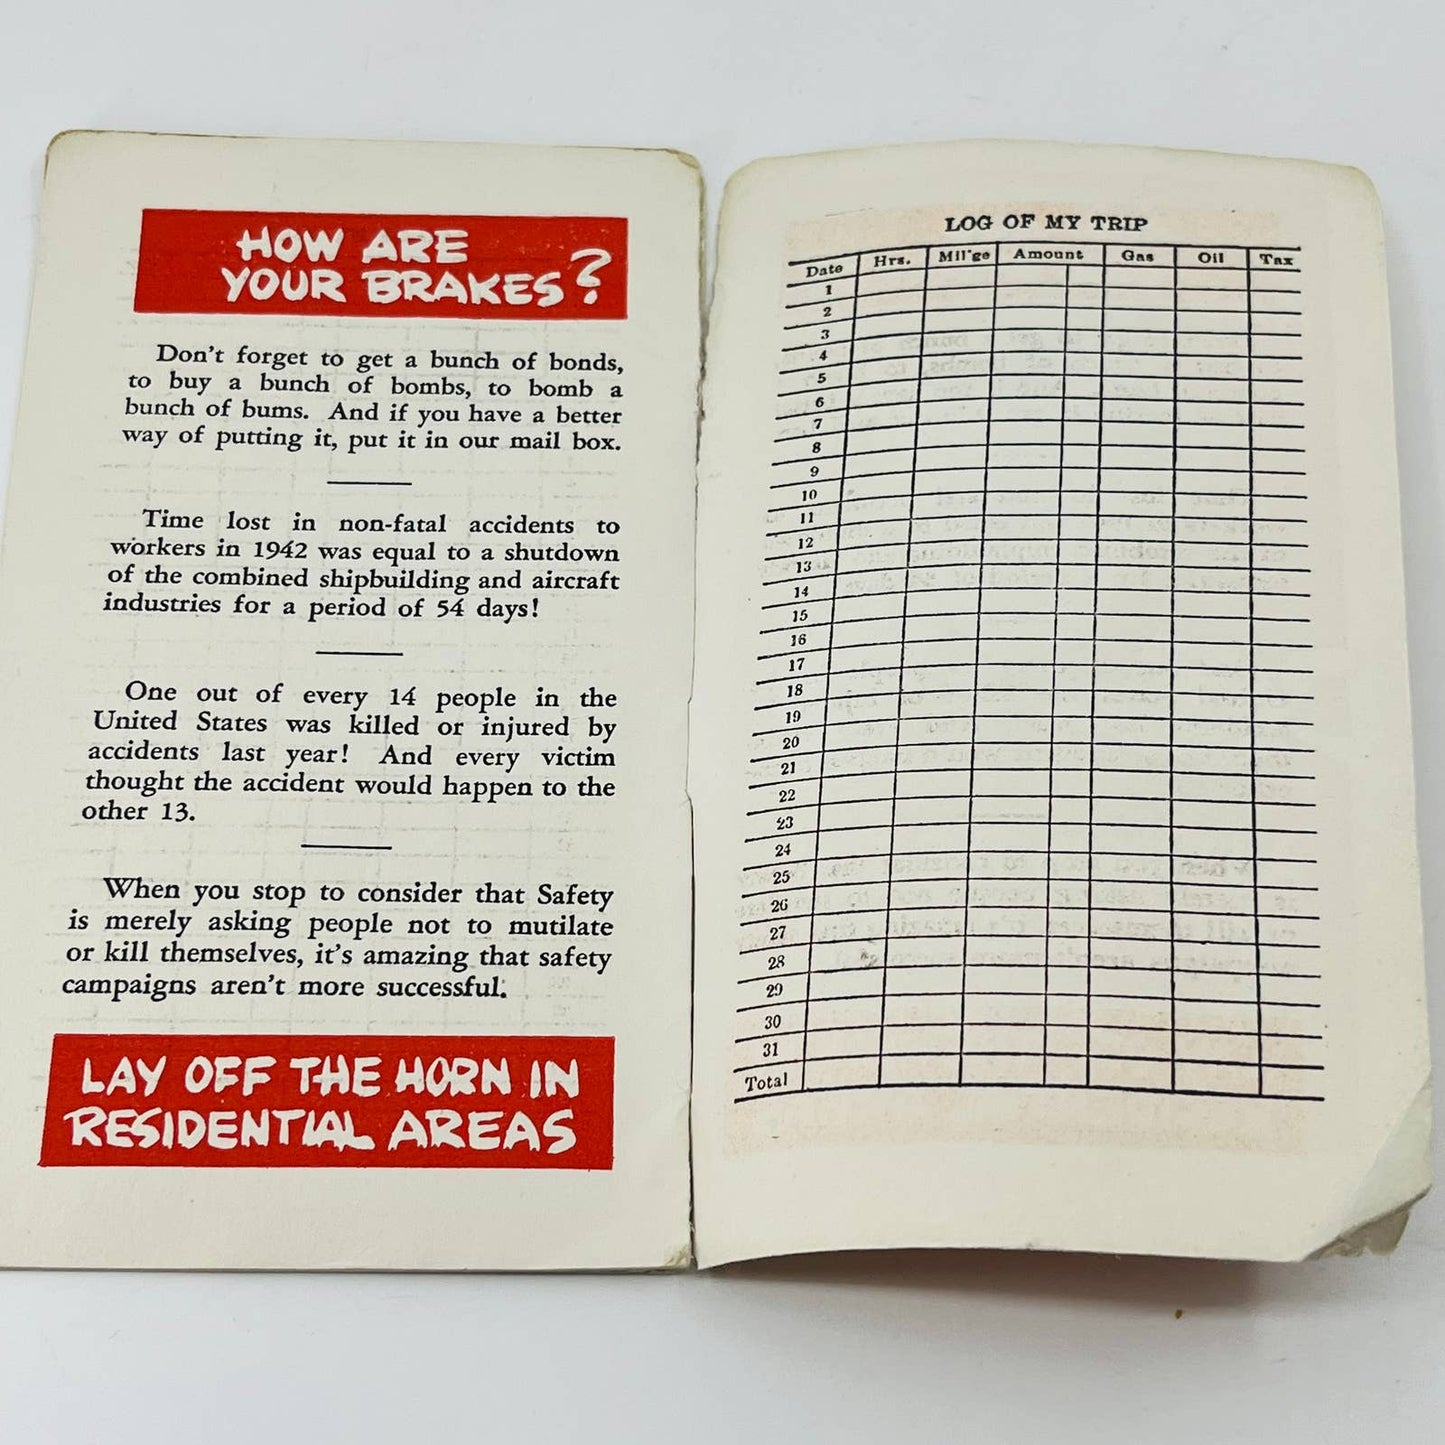 HOW ARE
YOUR BRAKES?
Don't forget to get a bunch of bonds,
to buy a bunch of bombs, to bomb a
bunch of bums. And if you have a better
way of putting it, put it in our mail box.
Time lost in non-fatal accidents to
workers in 1942 was equal to a shutdown
of the combined shipbuilding and aircraft
industries for a period of 54 days!
One out of every 14 people in the
United States was killed or injured by
accidents last year! And every victim
thought the accident would happen to the
other 13.
When you stop to consider that Safety
is merely asking people not to mutilate
or kill themselves, it's amazing that safety
campaigns aren't more successful.
LAY OFF THE HORN IN
RESIDENTIAL AREAS
LOG OF MY TRIP
Date Hrs. Mil'ge Amount Gas Oil Tax
1
2
3
4
5
6
7
8
9
10
11
12
13
14
15
16
17
18
19
20
21
22
23
24
25
26
27
28
29
30
31
Total